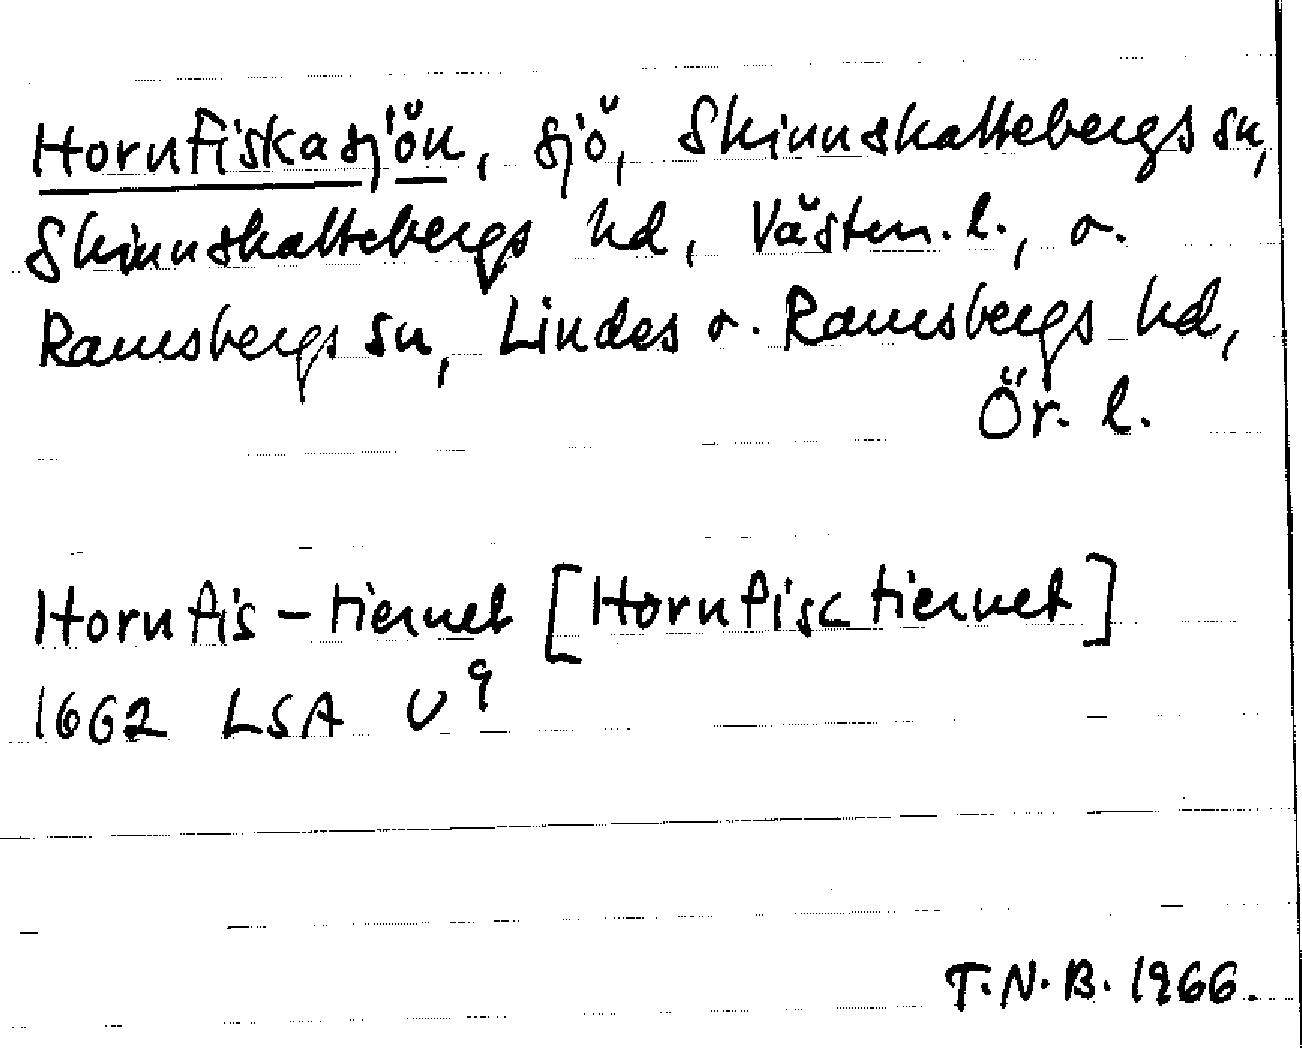 Hornfiskasjön, sjö, Skinnskattebergs sn,
Skinnskattebergs hd, Västm. l., o.
Ramsbergs sn, Lindes o. Ramsbergs hd,
Ör. l.
Hornfis-tiernet [Hornfisc tiernet]
1662 LSA U⁹
T.N.B. 1966.